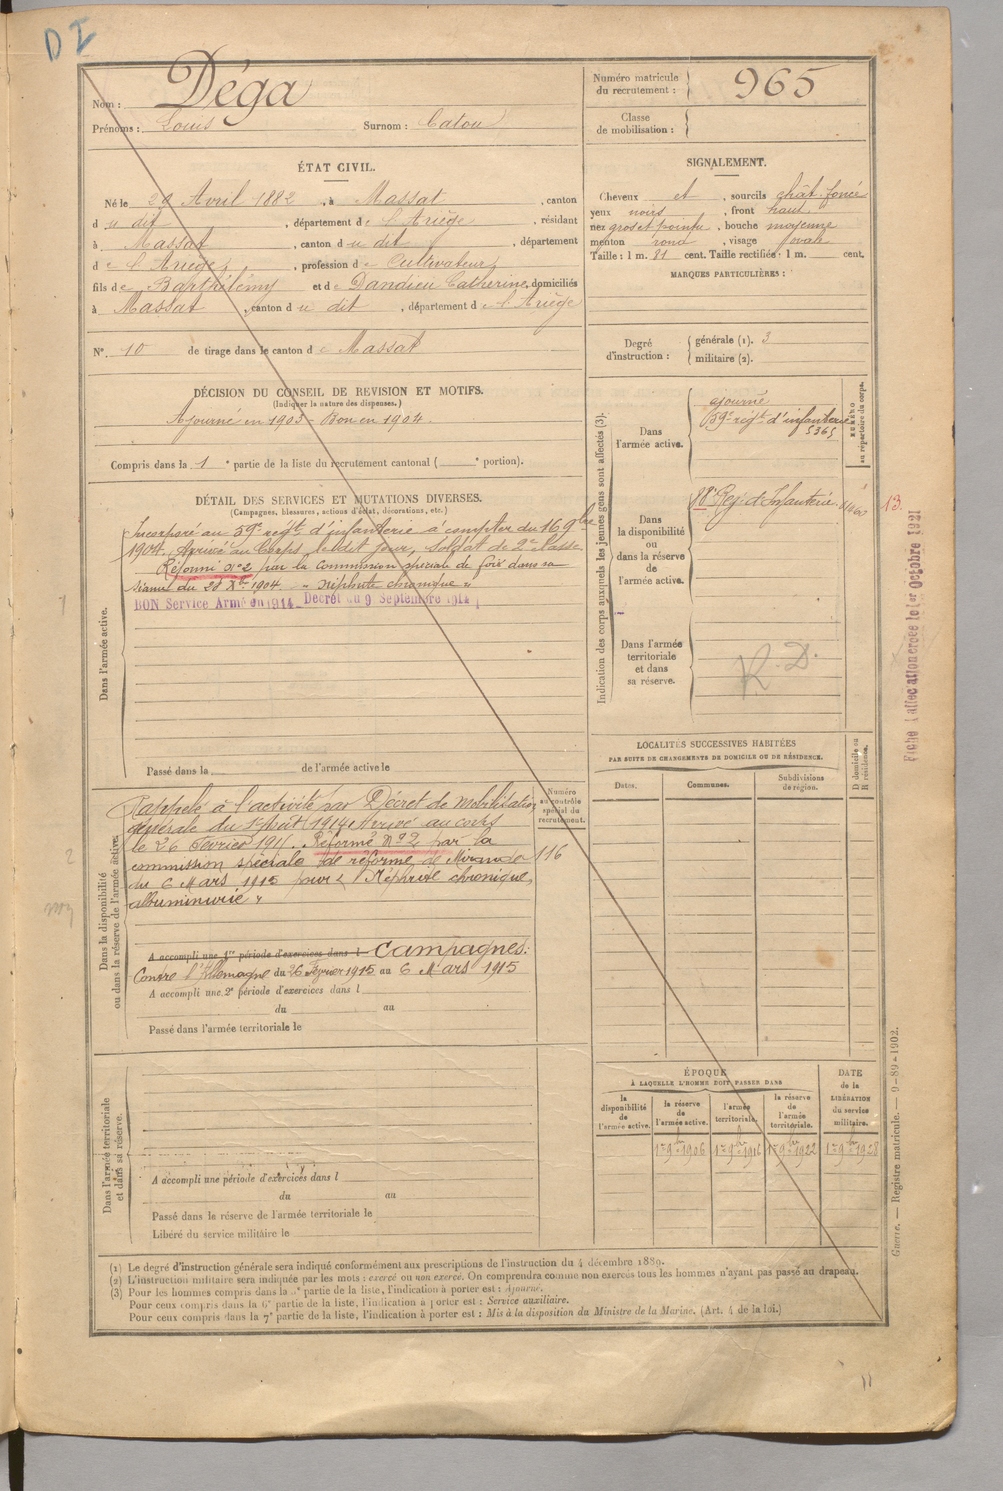 D I
Nom : Déga
Prénoms : Louis Surnom : Catou
Numéro matricule du recrutement : 965
Classe de mobilisation :
ÉTAT CIVIL.
Né le 29 Avril 1882, à Massat, canton
du dit, département de l'Ariège, résidant
à Massat, canton du dit, département
de l'Ariège, profession de Cultivateur,
fils de Barthélémy et de Dandieu Catherine, domiciliés
à Massat, canton du dit, département de l'Ariège
N° 10 de tirage dans le canton de Massat
SIGNALEMENT.
Cheveux et, sourcils chât. foncé
yeux noirs, front haut
nez gros et pointu, bouche moyenne
menton rond, visage ovale
Taille : 1 m. 81 cent. Taille rectifiée : 1 m. cent.
MARQUES PARTICULIÈRES :
Degré d'instruction : générale (1). 3
militaire (2).
DÉCISION DU CONSEIL DE REVISION ET MOTIFS.
(Indiquer la nature des dispenses.)
Ajourné en 1903 - Bon en 1904
Compris dans la 1e partie de la liste du recrutement cantonal ( e portion).
DÉTAIL DES SERVICES ET MUTATIONS DIVERSES.
(Campagnes, blessures, actions d'éclat, décorations, etc.)
Dans l'armée active.
Incorporé au 59e régt d'infanterie à compter du 16 9bre
1904. Arrivé au Corps ledit jour, Soldat de 2e classe
Réformé N°2 par la Commission spéciale de foix dans sa
séance du 20 Xbre 1904. « Néphrite chronique »
BON Service Armé en 1914 - Décret du 9 Septembre 1914
Passé dans la de l'armée active le
Dans la disponibilité ou dans la réserve de l'armée active.
Numéro au contrôle spécial du recrutement.
116
Rappelé à l'activité par Décret de mobilisation
générale du 1er Août 1914. Arrivé au corps
le 26 Février 1915. Réformé N°2 par la
commission spéciale de réforme de Mirande
du 6 Mars 1915 pour « Néphrite chronique,
albuminurie »
A accompli une 1re période d'exercices dans l CAMPAGNES:
Contre l'Allemagne du 26 Février 1915 au 6 Mars 1915
A accompli une 2e période d'exercices dans l
du au
Passé dans l'armée territoriale le
Dans l'armée territoriale et dans sa réserve.
A accompli une période d'exercices dans l
du au
Passé dans la réserve de l'armée territoriale le
Libéré du service militaire le
Indication des corps auxquels les jeunes gens sont affectés (3).
NUMÉRO au répertoire du corps.
Dans l'armée active.
ajourné
59e régt d'infanterie
5365
Dans la disponibilité ou dans la réserve de l'armée active.
88e Rég. d'Infanterie
13.
Dans l'armée territoriale et dans sa réserve.
R. D.
Fiche d'affectation créée le 1er Octobre 1921
LOCALITÉS SUCCESSIVES HABITÉES
PAR SUITE DE CHANGEMENTS DE DOMICILE OU DE RÉSIDENCE.
Dates. Communes. Subdivisions de région. D domicile ou R résidence.
ÉPOQUE
À LAQUELLE L'HOMME DOIT PASSER DANS
la disponibilité de l'armée active. la réserve de l'armée active. l'armée territoriale. la réserve de l'armée territoriale.
DATE de la LIBÉRATION du service militaire.
1er 9bre 1906 1er 9bre 1916 1er 9bre 1922 1er 9bre 1928
Guerre. — Registre matricule. — 9-89-1902.
(1) Le degré d'instruction générale sera indiqué conformément aux prescriptions de l'instruction du 4 décembre 1889.
(2) L'instruction militaire sera indiquée par les mots : exercé ou non exercé. On comprendra comme non exercés tous les hommes n'ayant pas passé au drapeau.
(3) Pour les hommes compris dans la 5e partie de la liste, l'indication à porter est : Ajourné.
Pour ceux compris dans la 6e partie de la liste, l'indication à porter est : Service auxiliaire.
Pour ceux compris dans la 7e partie de la liste, l'indication à porter est : Mis à la disposition du Ministre de la Marine. (Art. 4 de la loi.)